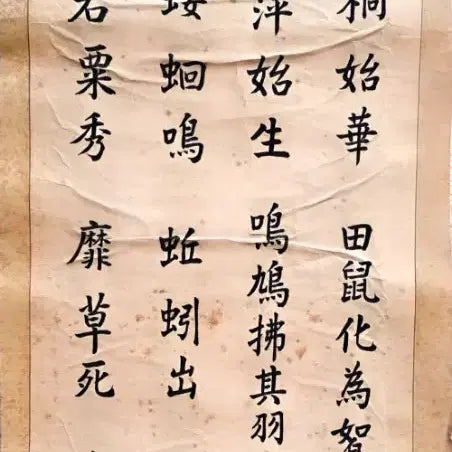 桐始華 田鼠化為
萍始生 鳴鳩拂其羽
蛔鳴 蚯蚓出
粟秀 靡草死